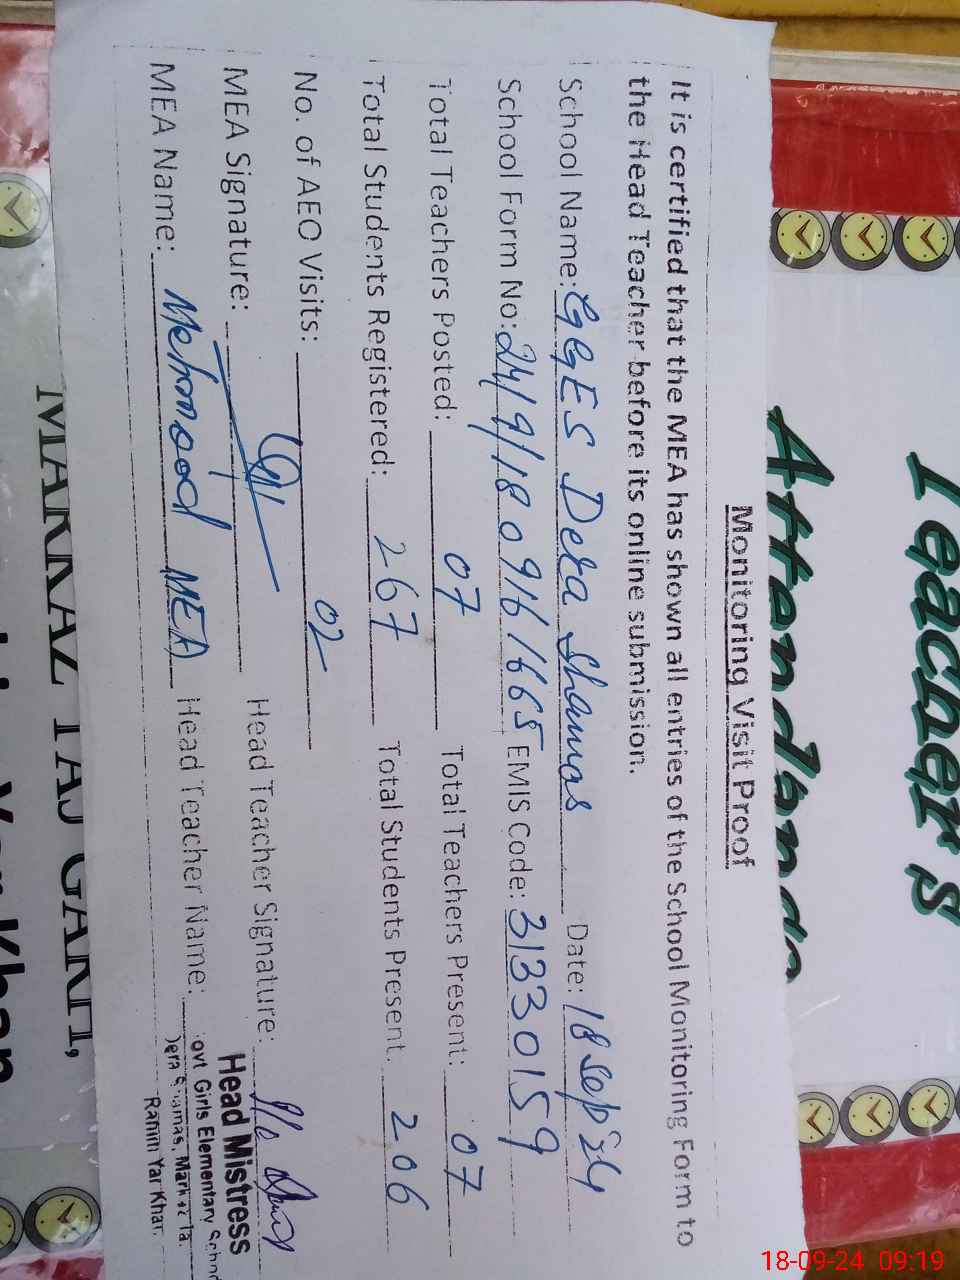 Teacher's
Attendance
Monitoring Visit Proof
It is certified that the MEA has shown all entries of the School Monitoring Form to
the Head Teacher before its online submission.
School Name: GGES Dera Shamas Date: 18 Sep 24
School Form No: 2419/18096/1665 EMIS Code: 31330159
Total Teachers Posted: 07 Total Teachers Present: 07
Total Students Registered: 267 Total Students Present: 206
No. of AEO Visits: 02
MEA Signature: Head Teacher Signature:
MEA Name: Mehmood MEA Head Teacher Name:
Head Mistress
ovt Girls Elementary School
Dera Shamas, Markaz Ta.
Rahim Yar Khan.
MARKAZ TAJ GARH,
Yar Khan
18-09-24 09:19